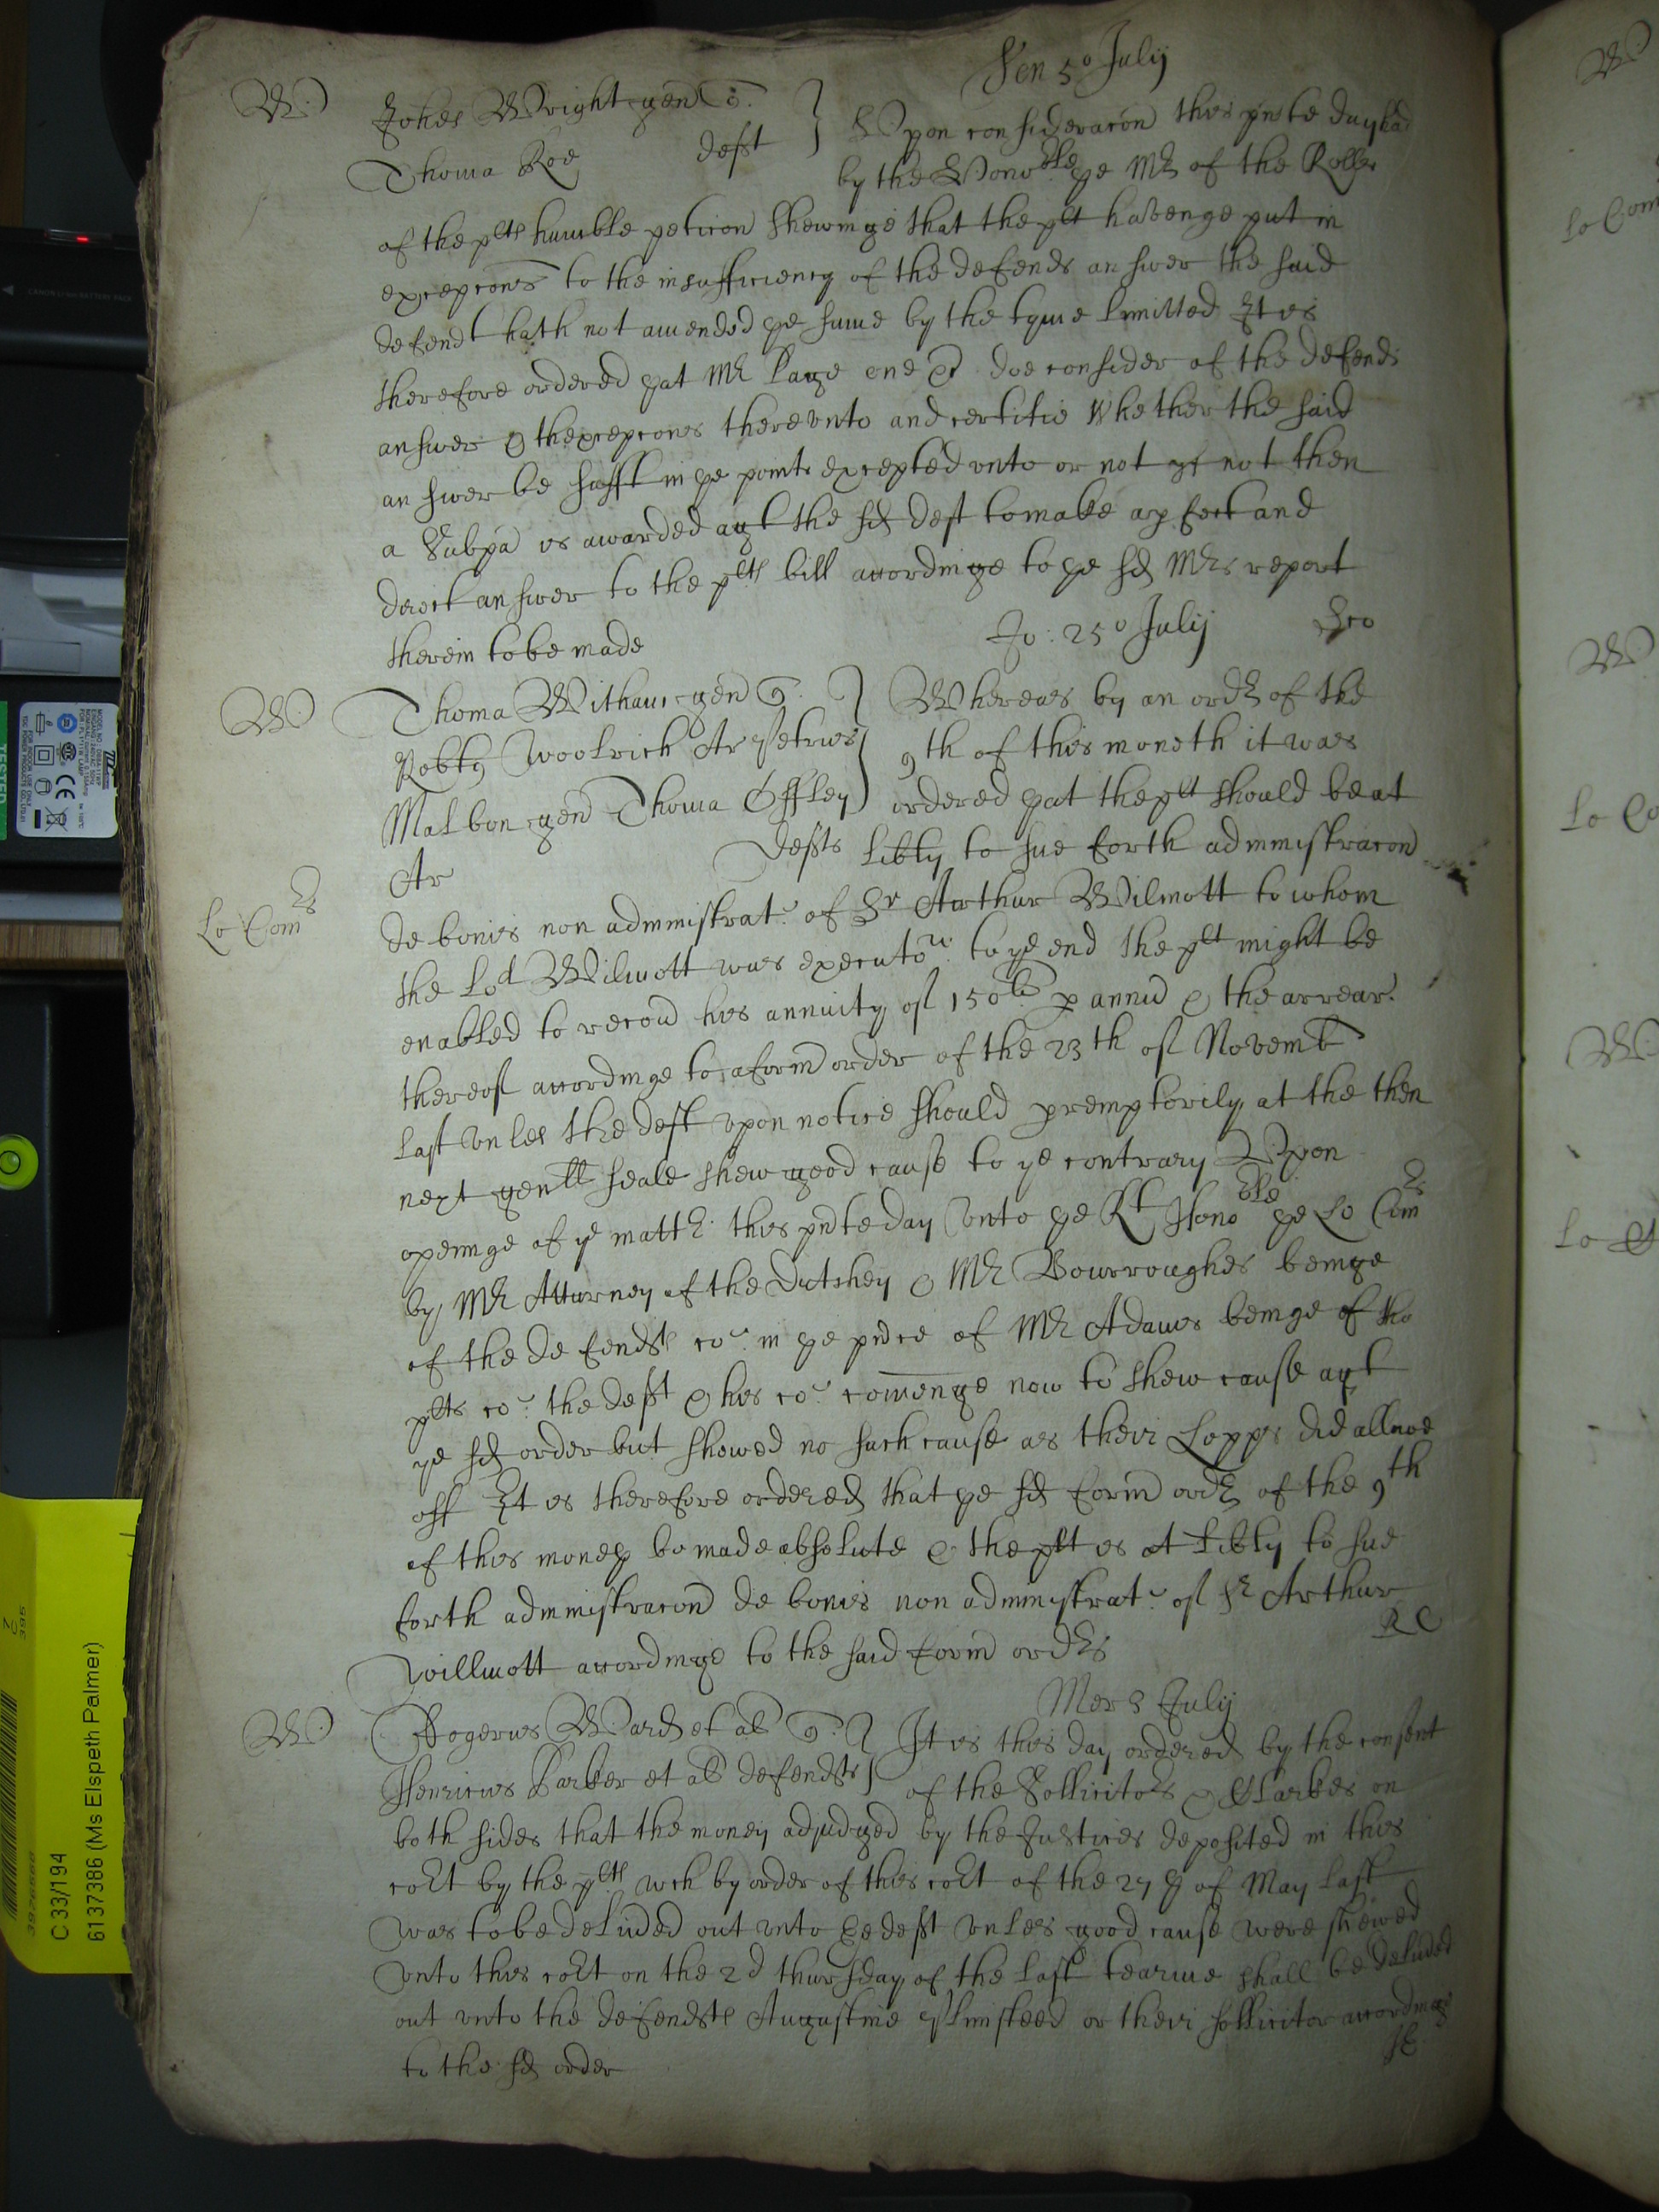 Ven 5o July
W Johes Wright gen q.
Thoma Roe deft
Upon consideracon this pnte day had
by the Honoble ye Mr of the Rolls
of the plts humble peticon shewinge that the plt havenge put in
excepcons to the insufficiency of the defends answer the said
defendt hath not amended ye same by the tyme limitted It is
therefore ordered yat Mr Page one &c doe consider of the defends
answer & thexcepcons thereunto and certifie whether the said
answer be sufft in ye points excepted unto or not yf not then
a Subpa is awarded agt the sd deft to make a pfect and
direct answer to the plts bill accordinge to ye sd Mrs report
therein to be made
Jo: 25o July
W Thoma Witham gen q.
Robtus Woolrich Ar Petrus
Malbon gen Thoma Offley
Ar defts
Whereas by an ordr of the
9th of this moneth it was
ordered yat the plt should be at
libty to sue forth administracon
Lo Comrs
de bonis non administrat. of Sr Arthur Wilmott to whom
the Lod Wilmott was executor to ye end the plt might be
enabled to recovr his annuity of 150li p annu & the arrear.
thereof accordinge to a form order of the 23th of Novemb
last unles the deft upon notice should premptorily at the then
next genll seale shew good cause to ye contrary Upon
openinge of ye mattr this pnte day unto ye Rt Honoble ye Lo Comrs
by Mr Atturney of the Dutchey & Mr Bourroughes beinge
of the defendts co. in ye pnce of Mr Adams beinge of the
plts co. the deft & his co. cominge now to shew cause agt
ye sd order but shewed no such cause as their Lopps did allowe
off It is therefore ordered that ye sd form ordr of the 9th
of this moneth be made absolute & the plt is at libty to sue
forth administracon de bonis non administrat. of Sr Arthur
Willmott accordinge to the said form ordrs
RC
Mer 3 July
W Rogerus Ward et al q.
Henricus Barker et al defendts
It is this day ordered by the consent
of the Sollicitors & Clarkes on
both sides that the money adjudged by the Justices deposited in this
cort by the plts wch by order of this cort of the 27th of May last
was to be delivred out unto ye deft unles good cause were shewed
unto this cort on the 2d thursday of the last tearme shall be delivred
out unto the defendts Augustine Plimsteed or their sollicitor accordinge
to the sd order
C 33/194
6137386 (Ms Elspeth Palmer)